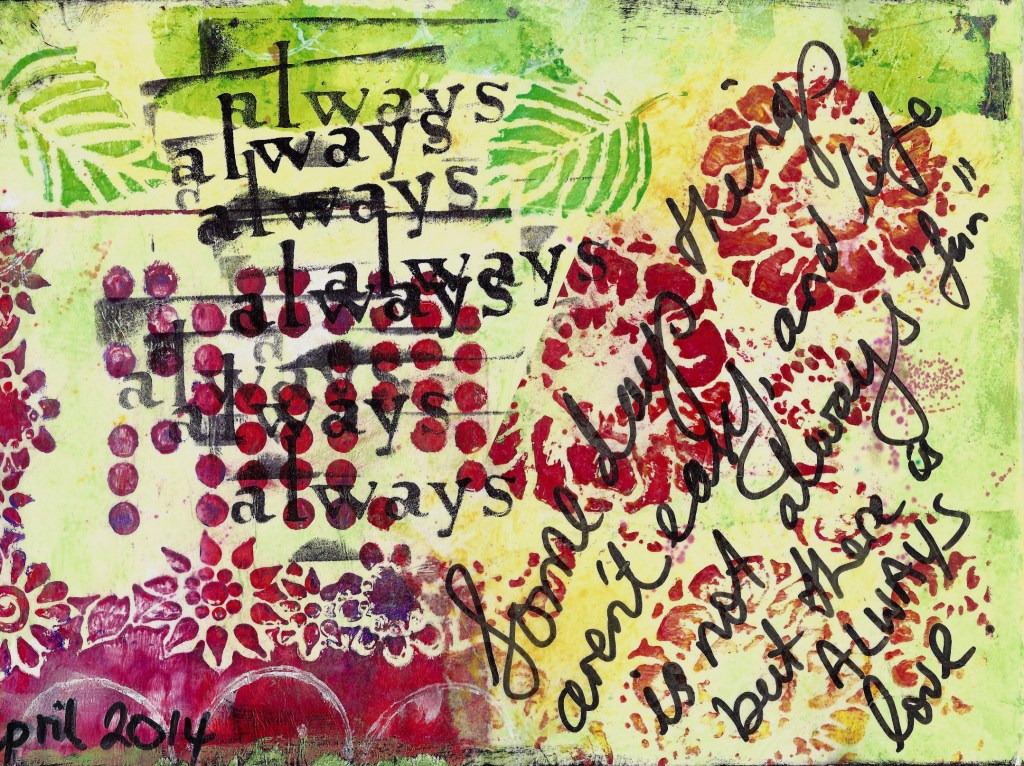 always
always
always
always
always
always
always
always
Some days things
aren't easy, and life
is not always "fun"
but there is
ALWAYS
love
pril 2014